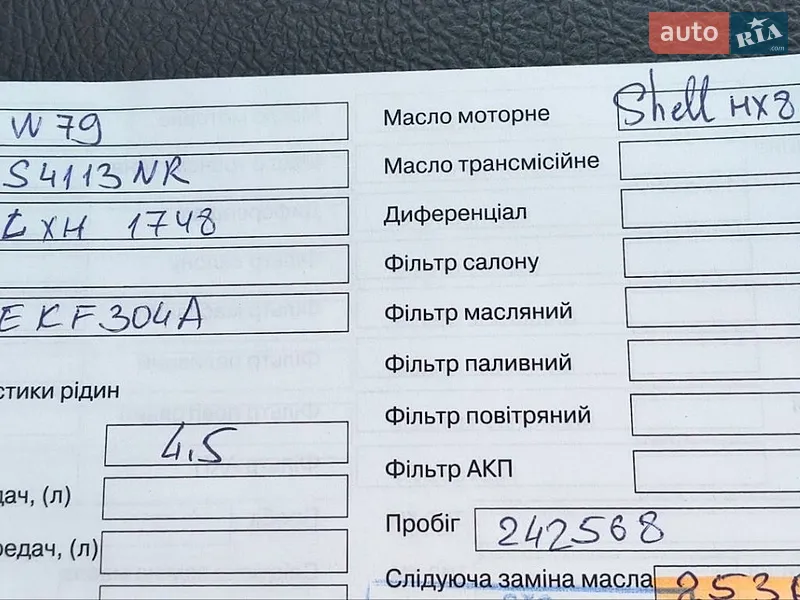 auto RIA.com
W 79
S4113NR
LXH 1748
EKF304A
стики рідин
4.5
дач, (л)
редач, (л)
Масло моторне Shell HX8
Масло трансмісійне
Диференціал
Фільтр салону
Фільтр масляний
Фільтр паливний
Фільтр повітряний
Фільтр АКП
Пробіг 242568
Слідуюча заміна масла 253